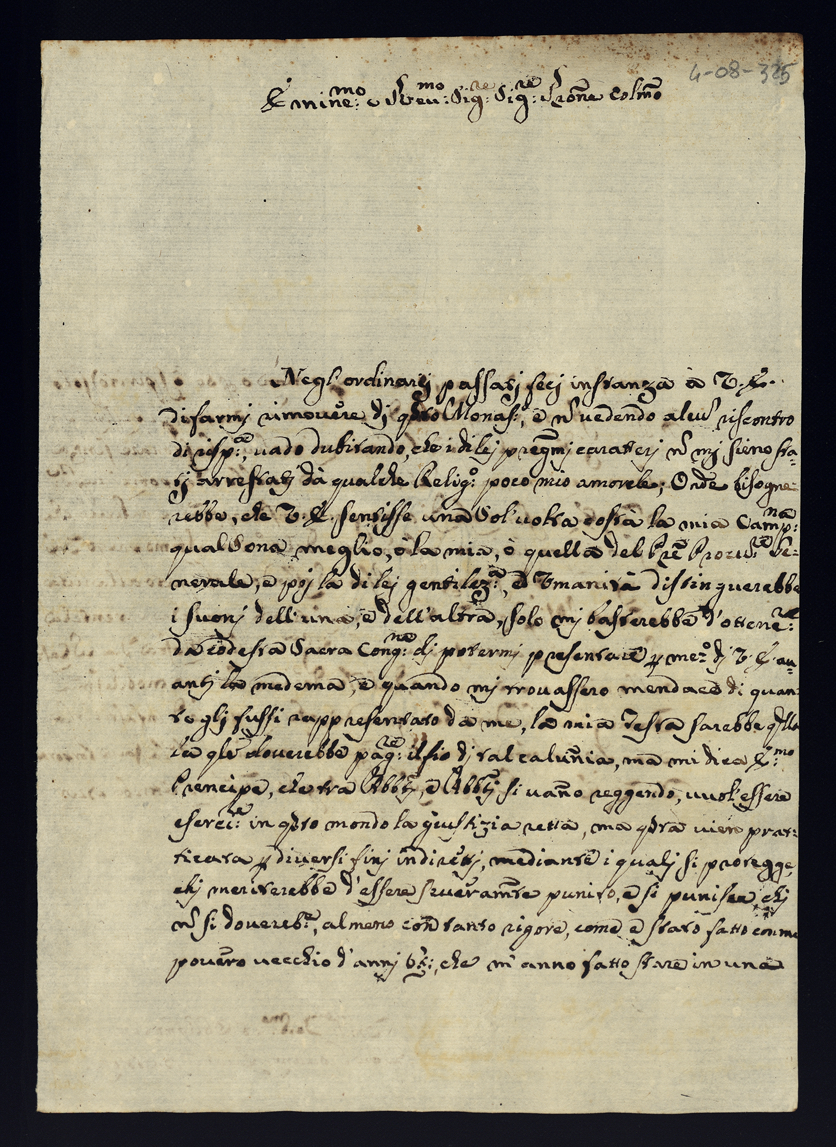 4-08-325
Emine:mo e Reu:mo Sig:re Sig:re Prone Colmo
Negl'ordinarij passatj fecj instanza à V. E.
di farmj rimovere dj qsto Monast:, e nō vedendo alcun riscontro
di risp:ta, vado dubitando, che i dilej pregmj caratterj nō mj sieno sta-
tj arrestatj dà qualche Relig:o poco mio amorele; Onde bisogne
rebbe, che V. E. sentisse unà Sol volta costà la mia Camp:na
qual Sona meglio, ò la mia, ò quella del Pre Procur:re Ge-
nerale, e poj la di lej gentilez:a, ed Vmanità distinguerebbe
i suonj dell'una, e dell'altra, solo mj basterebbe d'ottene:re
da codesta Sacra Cong:ne dj potermj presentare p mez:o dj V. E. au-
antj la medema, e quando mj trovassero mendace di quan-
to glj fussi rappresentato da me, la mia Testa sarebbe qlla
la qle doverebbe pag:re il fio dj tal calunnia, ma mi dica E:mo
Prencipe, che tra Abbtj, e Abbtj si vanno reggendo, vuol essere
eserci:re in qsto mondo la giustizia retta, ma qsta vien prat-
ticata p diversi finj indirettj, mediante i qualj si protegge,
chj meriterebbe d'essere severamte punito, e si punisce chj
nō si doverebe, almeno con tanto rigore, come è stato fatto con me
povero vecchio d'annj che m'anno fatto stare in una